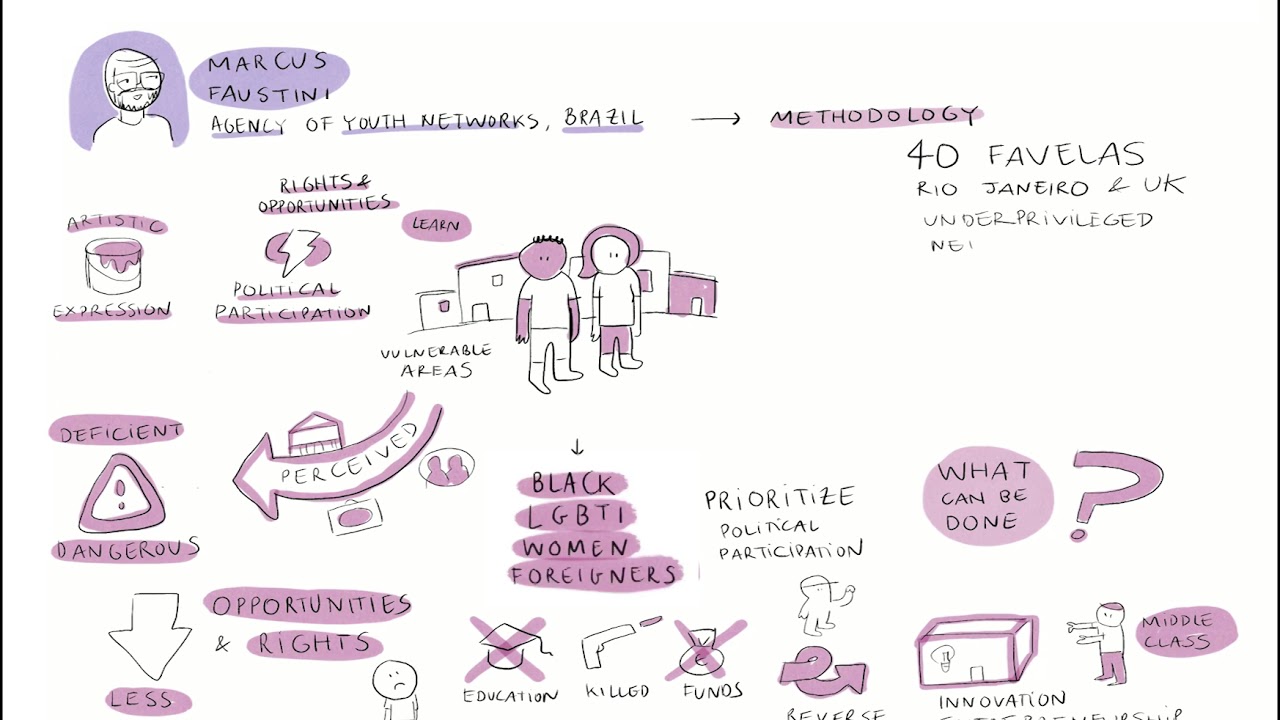 MARCUS
FAUSTINI
AGENCY OF YOUTH NETWORKS, BRAZIL
METHODOLOGY
40 FAVELAS
RIO JANEIRO & UK
UNDERPRIVILEGED
NEI
RIGHTS &
OPPORTUNITIES
ARTISTIC
EXPRESSION
POLITICAL
PARTICIPATION
LEARN
VULNERABLE
AREAS
DEFICIENT
DANGEROUS
PERCEIVED
BLACK
LGBTI
WOMEN
FOREIGNERS
PRIORITIZE
POLITICAL
PARTICIPATION
WHAT
CAN BE
DONE
?
OPPORTUNITIES
& RIGHTS
LESS
EDUCATION
KILLED
FUNDS
REVERSE
MIDDLE
CLASS
INNOVATION
ENTREPRENEURSHIP